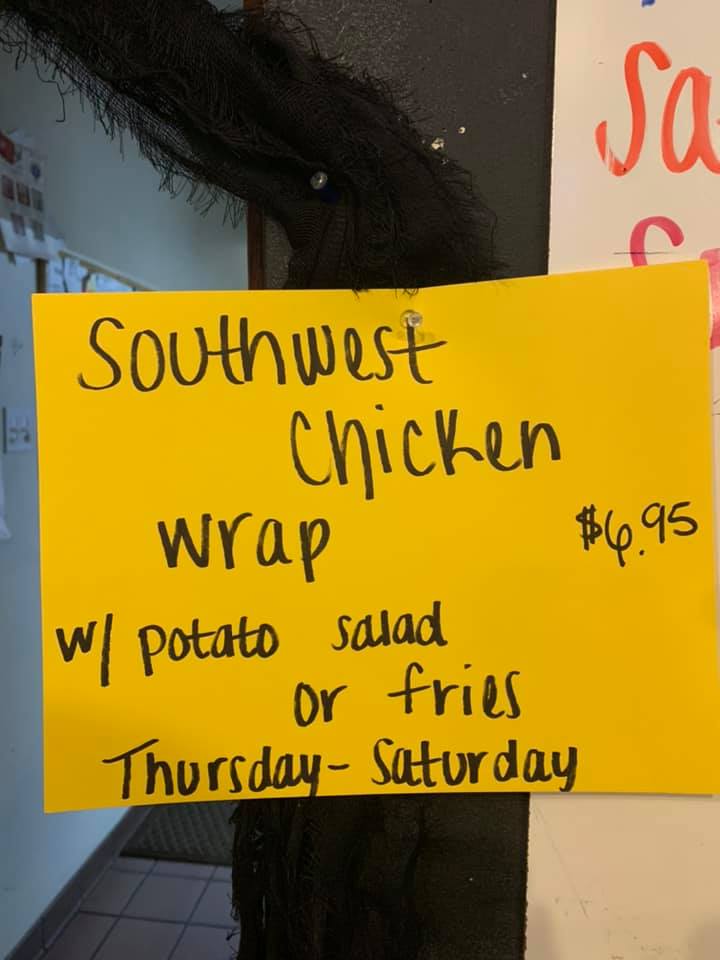 Southwest
Chicken
wrap
$6.95
w/ potato salad
or fries
Thursday - Saturday
Sa